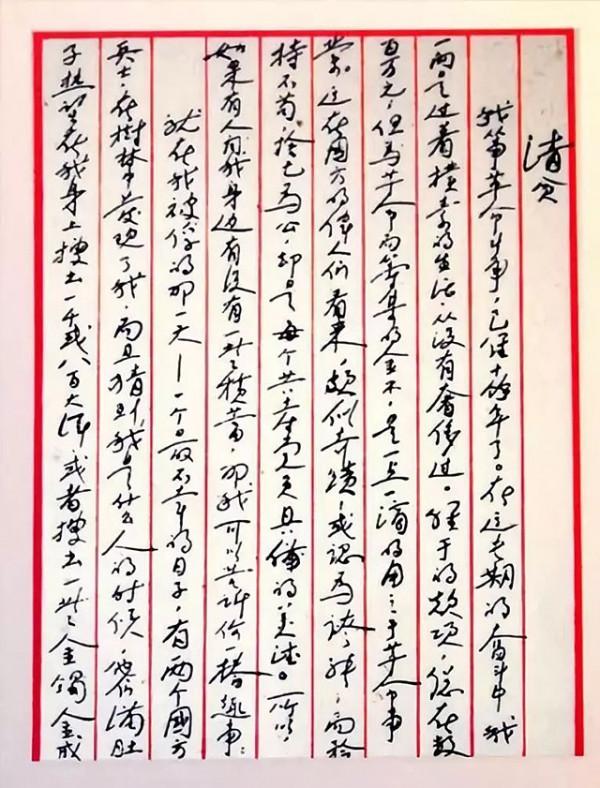 清贫
我从事革命斗争,已经十餘年了。在这长期的奋斗中 我
一向是过着樸素的生活,从没有奢侈过。经手的款项,总在数
百万元,但为革命而筹集的金钱,是一点一滴的用之于革命事
业。这在國方的伟人们看来,颇似奇蹟,或认为誇张;而矜
持不苟,捨己为公,却是每个共产党员具備的美德。所以,
如果有人问我身边有没有一些积蓄,那我可以告诉你一椿趣事:
就在我被俘的那一天—一个最不幸的日子,有两个國方
兵士,在樹林中发现了我,而且猜到我是什么人的时候,他们满肚
子热望在我身上搜出一千或八百大洋,或者搜出一些金镯金戒